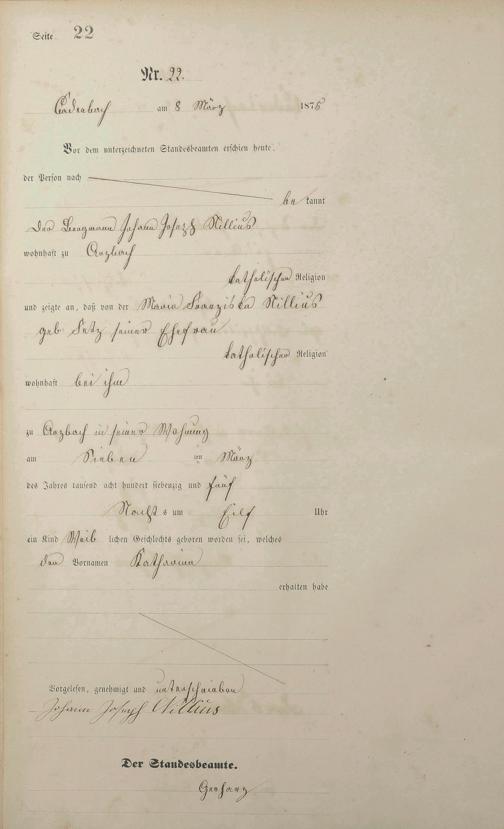 Seite 22
Nr. 22.
Cadenbach am 8 März 1875
Vor dem unterzeichneten Standesbeamten erschien heute,
der Person nach
be kannt
der Bergmann Johann Joseph Nillius
wohnhaft zu Arzbach
katholischer Religion
und zeigte an, daß von der Maria Franziska Nillius
geb seiner Ehefrau
katholischer Religion
wohnhaft bei ihm
zu Arzbach in seiner Wohnung
am Sieben im März
des Jahres tausend acht hundert siebenzig und fünf
Nacht s um Eilf Uhr
ein Kind Weib lichen Geschlechts geboren worden sei, welches
den Vornamen Katharina
erhalten habe
Vorgelesen, genehmigt und unterschrieben
Johann Joseph Nillius
Der Standesbeamte.